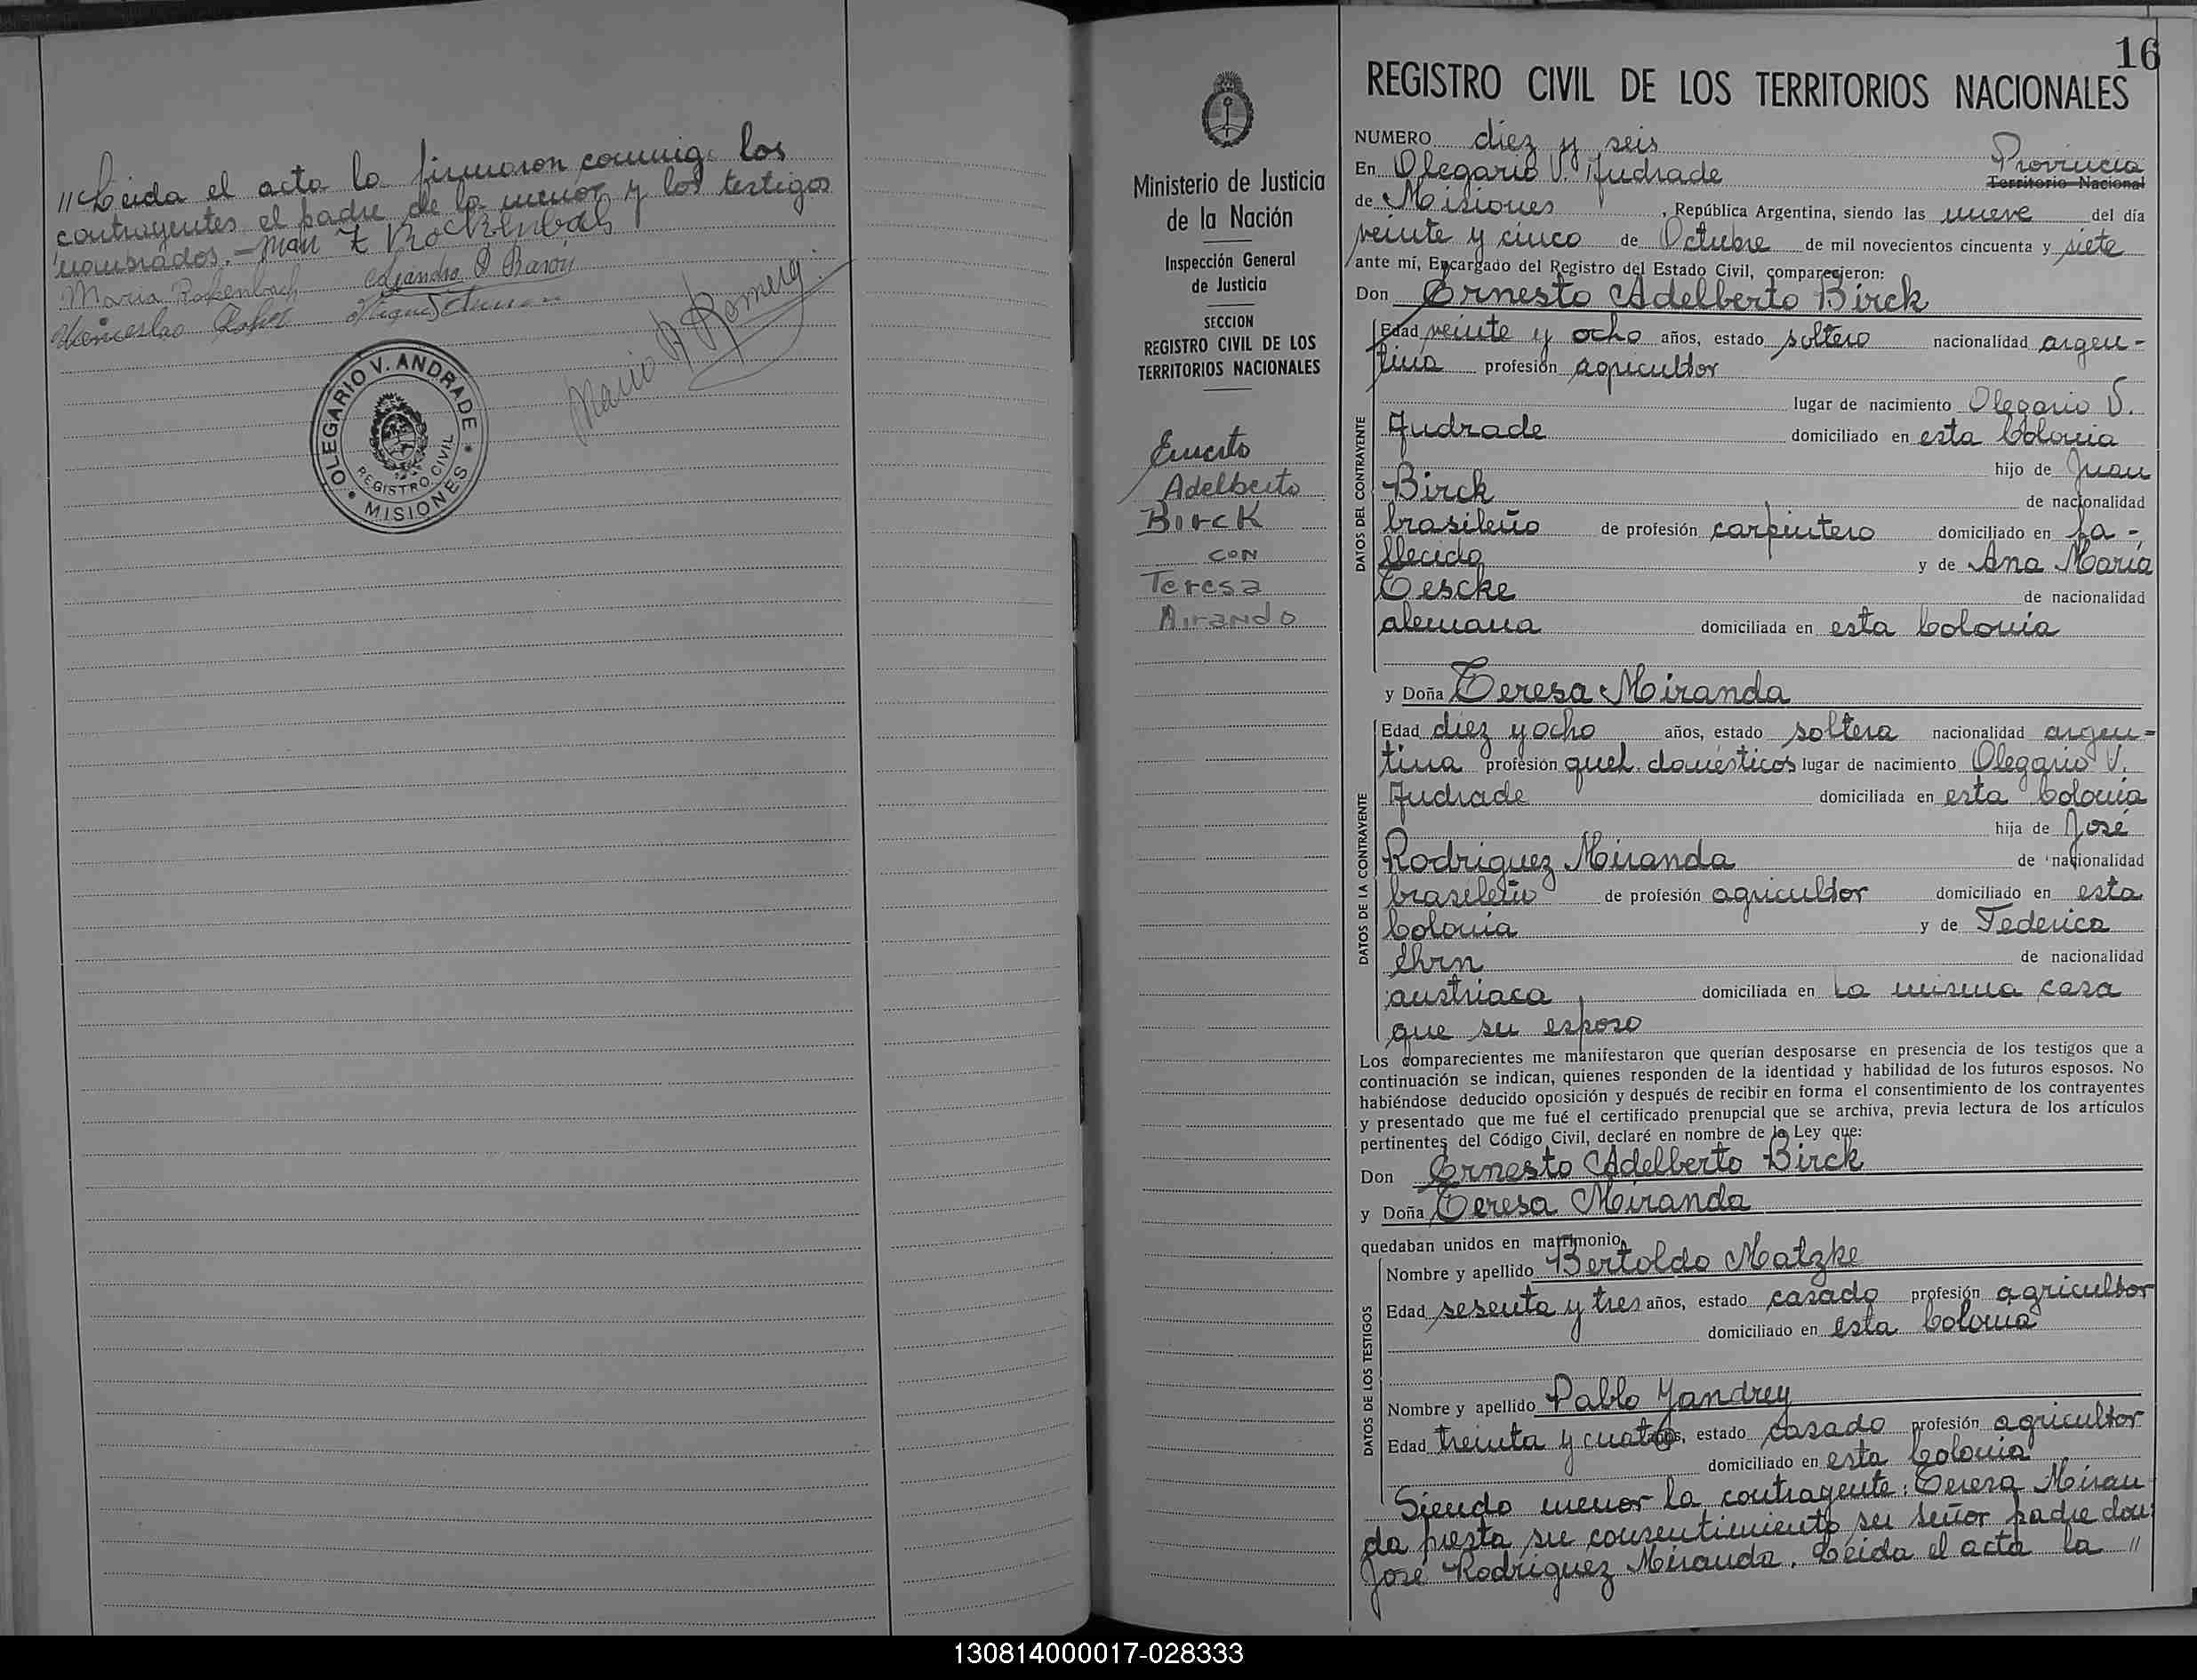 "Leida el acta la firmaron conmigo los
contrayentes el padre de la menor y los testigos
nombrados.-
Maria Rokenbach Lisandro Baron
Wenceslao
Mario A Romero
OLEGARIO V. ANDRADE
REGISTRO CIVIL
MISIONES
Ministerio de Justicia
de la Nación
Inspección General
de Justicia
SECCION
REGISTRO CIVIL DE LOS
TERRITORIOS NACIONALES
Ernesto
Adelberto
Birck
con
Teresa
Mirando
16
REGISTRO CIVIL DE LOS TERRITORIOS NACIONALES
NUMERO diez y seis
Provincia
En Olegario V. Andrade Territorio Nacional
de Misiones, República Argentina, siendo las nueve del día
veinte y cinco de Octubre de mil novecientos cincuenta y siete
ante mí, Encargado del Registro del Estado Civil, comparecieron:
Don Ernesto Adelberto Birck
DATOS DEL CONTRAYENTE
Edad veinte y ocho años, estado soltero nacionalidad argen-
tina profesión agricultor
lugar de nacimiento Olegario V.
Andrade domiciliado en esta Colonia
hijo de Juan
Birck de nacionalidad
brasileño de profesión carpintero domiciliado en fa-
llecido y de Ana María
Teschke de nacionalidad
alemana domiciliada en esta Colonia
y Doña Teresa Miranda
DATOS DE LA CONTRAYENTE
Edad diez y ocho años, estado soltera nacionalidad argen=
tina profesión queh. domésticos lugar de nacimiento Olegario V.
Andrade domiciliada en esta Colonia
hija de José
Rodriguez Miranda de nacionalidad
brasileño de profesión agricultor domiciliado en esta
Colonia y de Federica
Ehrn de nacionalidad
austriaca domiciliada en la misma casa
que su esposo
Los comparecientes me manifestaron que querían desposarse en presencia de los testigos que a
continuación se indican, quienes responden de la identidad y habilidad de los futuros esposos. No
habiéndose deducido oposición y después de recibir en forma el consentimiento de los contrayentes
y presentado que me fué el certificado prenupcial que se archiva, previa lectura de los artículos
pertinentes del Código Civil, declaré en nombre de la Ley que:
Don Ernesto Adelberto Birck
y Doña Teresa Miranda
quedaban unidos en matrimonio
DATOS DE LOS TESTIGOS
Nombre y apellido Bertoldo Matzke
Edad sesenta y tres años, estado casado profesión agricultor
domiciliado en esta Colonia
Nombre y apellido Pablo Yandrey
Edad treinta y cuatro años, estado casado profesión agricultor
domiciliado en esta Colonia
Siendo menor la contrayente: Teresa Miran
da presta su consentimiento su señor padre don
José Rodriguez Miranda. Leida el acta la "
130814000017-028333